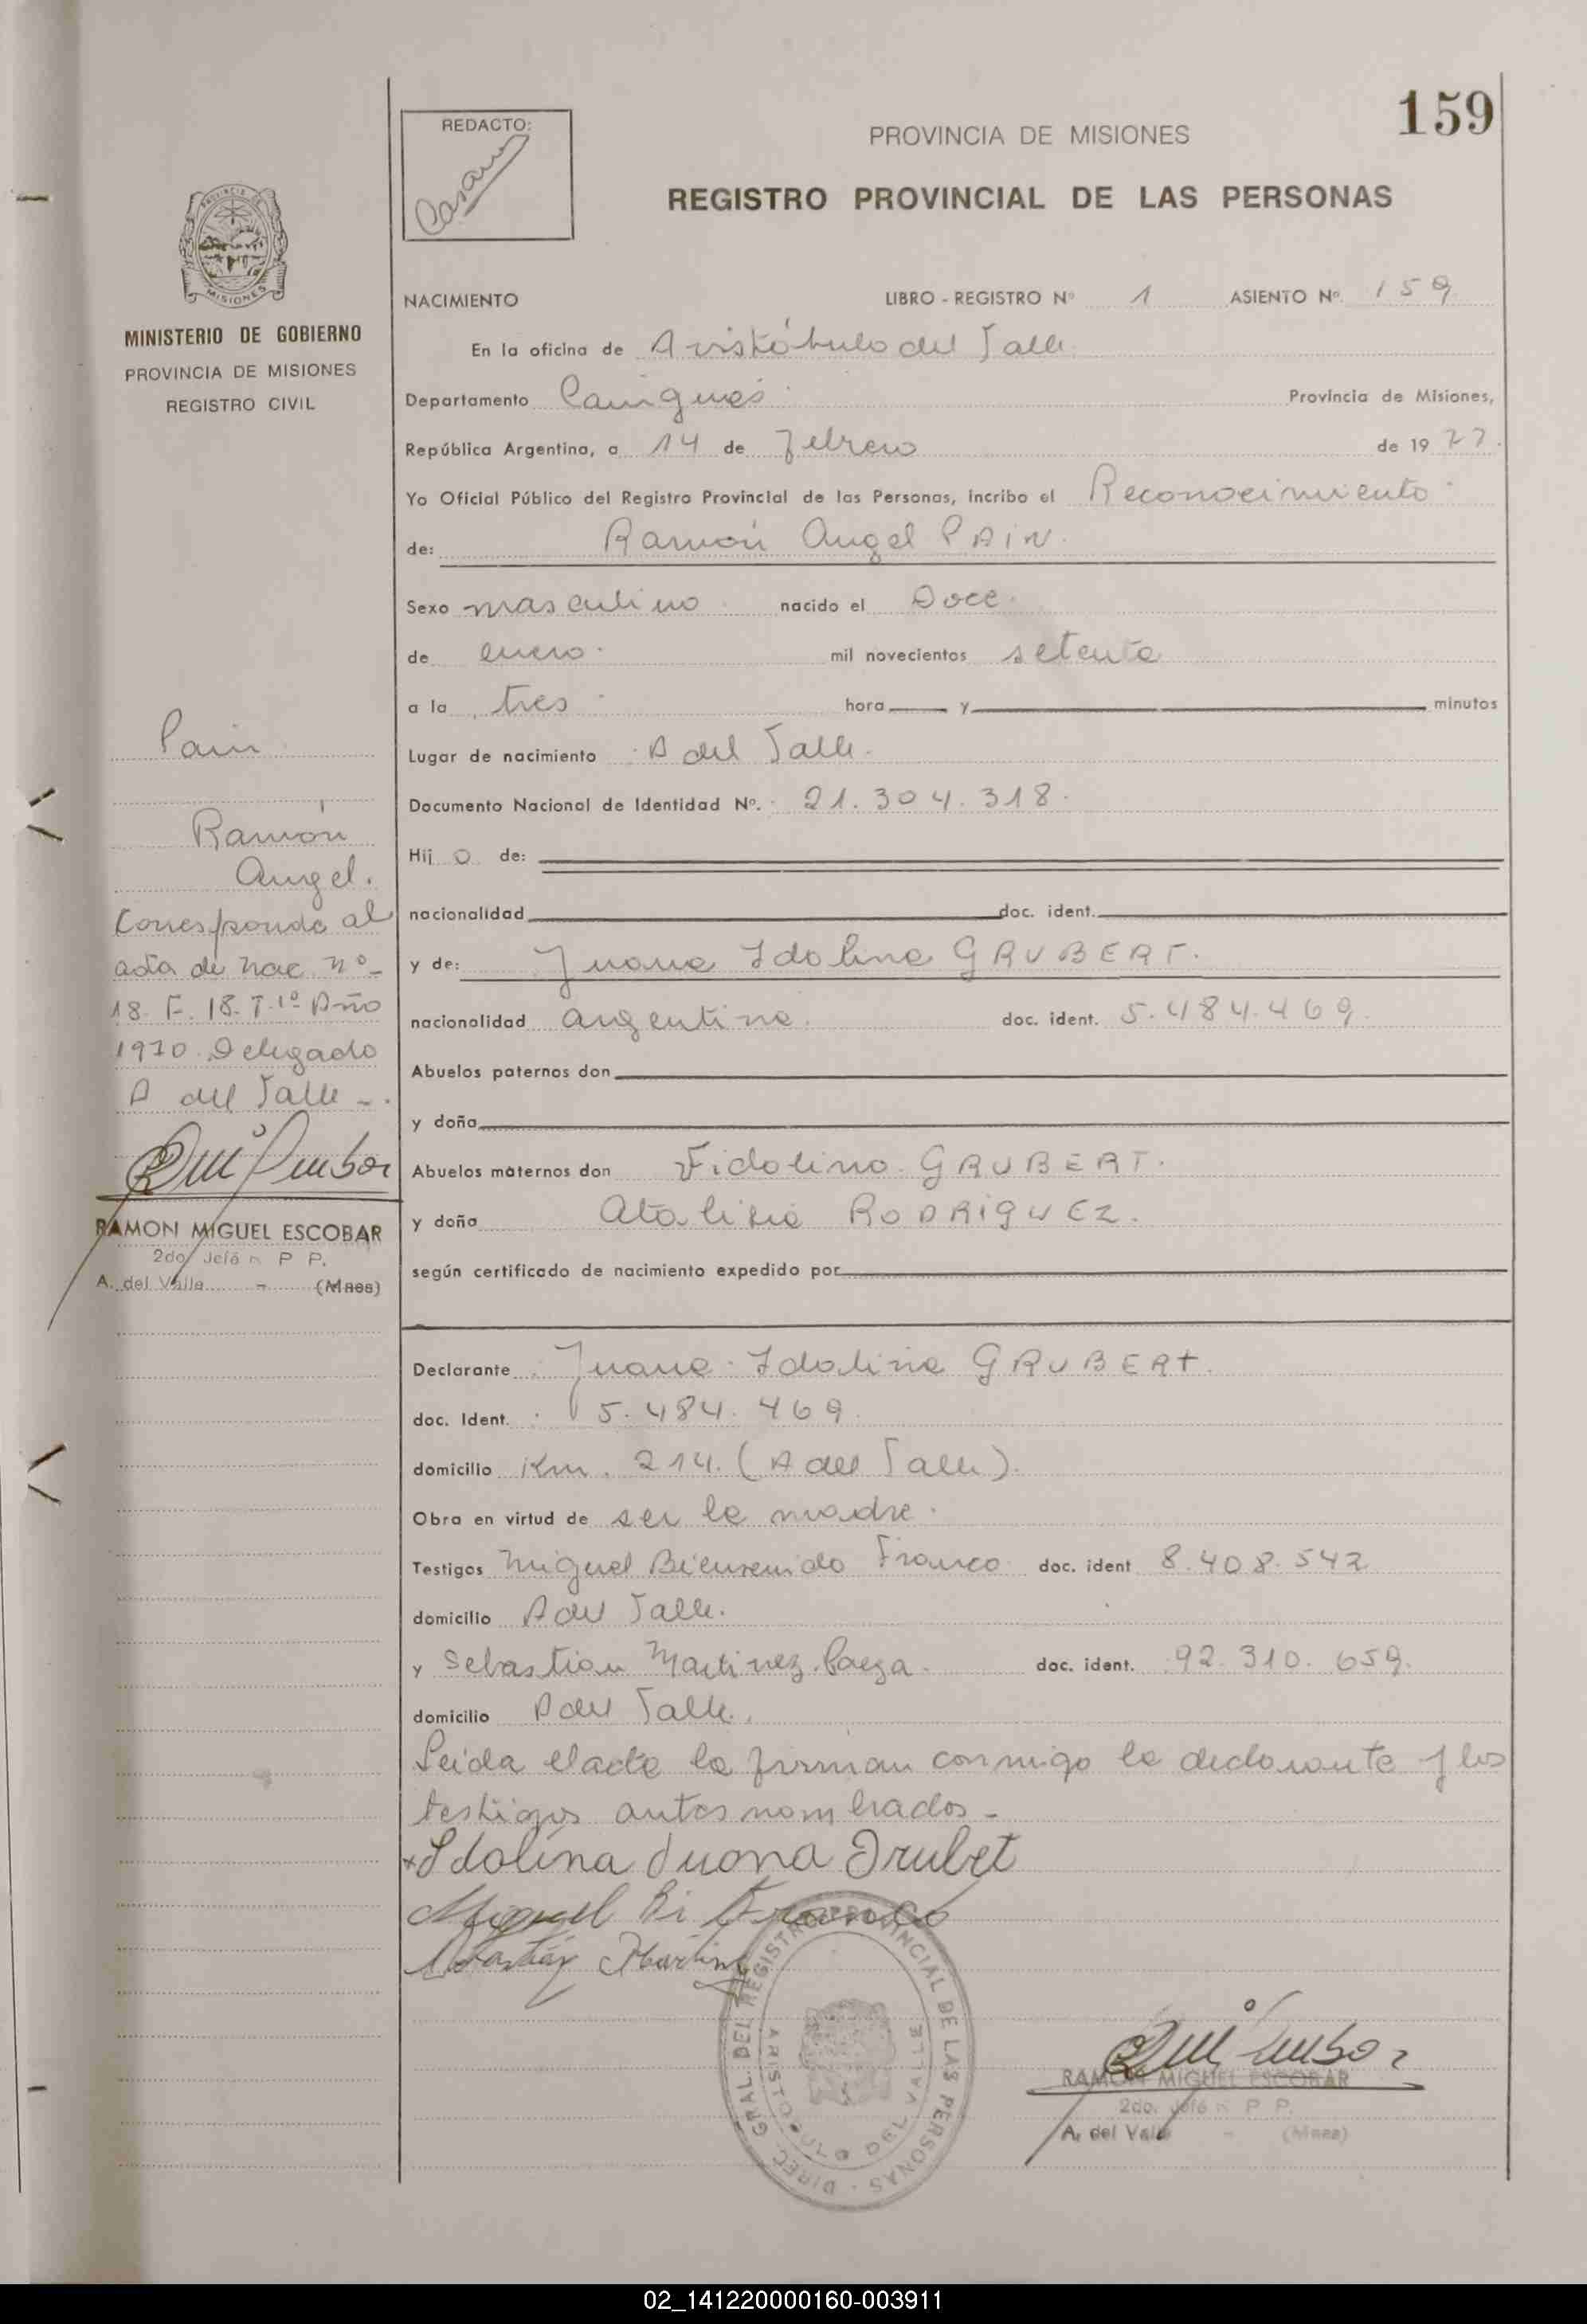 159
REDACTO:
Casam
PROVINCIA DE MISIONES
REGISTRO PROVINCIAL DE LAS PERSONAS
MISIONES
MINISTERIO DE GOBIERNO
PROVINCIA DE MISIONES
REGISTRO CIVIL
NACIMIENTO LIBRO - REGISTRO Nº 1 ASIENTO Nº 159
En la oficina de Aristóbulo del Valle
Departamento Cainguás Provincia de Misiones,
República Argentina, a 14 de febrero de 1977.
Yo Oficial Público del Registro Provincial de las Personas, incribo el Reconocimiento
de: Ramón Angel PAIN.
Sexo masculino nacido el Doce.
de enero. mil novecientos setenta
a la tres hora y minutos
Lugar de nacimiento A del Valle.
Documento Nacional de Identidad Nº. 21.304.318.
Hij o de:
nacionalidad doc. ident.
y de: Juana Idolina GRUBERT.
nacionalidad argentina. doc. ident. 5.484.469.
Abuelos paternos don
y doña
Abuelos maternos don Fidolino GRUBERT.
y doña RODRIGUEZ.
según certificado de nacimiento expedido por
Declarante Juana Idolina GRUBERT.
doc. Ident. 5.484.469.
domicilio Km. 214. (A del Valle).
Obra en virtud de ser la madre.
Testigos Miguel Bienvenido Franco doc. ident 8.408.542
domicilio A del Valle.
y Sebastian Martinez Paeza. doc. ident. 92.310.659.
domicilio A del Valle.
Leida el acta la firman conmigo la declarante y los
testigos antes nombrados -
Idolina Juana Grubet
Miguel Bi Franco
Sebastián Martinez
DIREC. GRAL. DEL REGISTRO PROVINCIAL DE LAS PERSONAS
ARISTOBULO DEL VALLE
RAMON MIGUEL ESCOBAR
2do. Jefe P P.
A. del Valle - (Mnes)
Pain
Ramón
Angel.
Corresponde al
acta de nac nº
18. F. 18. T. 1º Año
1970. Delegado
A del Valle -.
RAMON MIGUEL ESCOBAR
2do. Jefe P P.
A. del Valle - (Mnes)
02_141220000160-003911